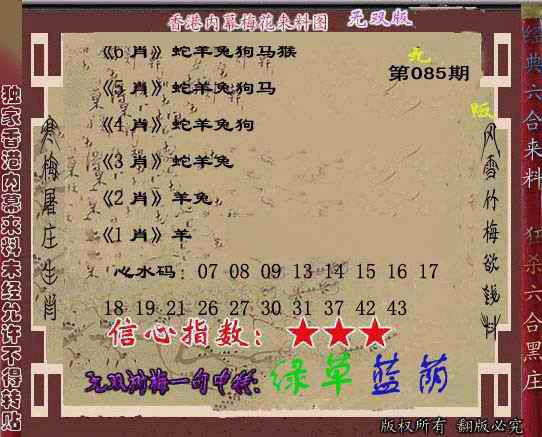 香港内幕梅花来料图 无双版
《6 肖》蛇羊兔狗马猴
第085期
《5 肖》蛇羊兔狗马
《4 肖》蛇羊兔狗
《3 肖》蛇羊兔
《2 肖》羊兔
《1 肖》羊
心水码：07 08 09 13 14 15 16 17
18 19 21 26 27 30 31 37 42 43
信心指数：★★★
一句中特：绿草蓝荫
版权所有 翻版必究
独家香港内幕来料未经允许不得转贴
寒梅屠庄生肖
风雪竹梅欲钱料
经典六合来料 狂杀六合黑庄